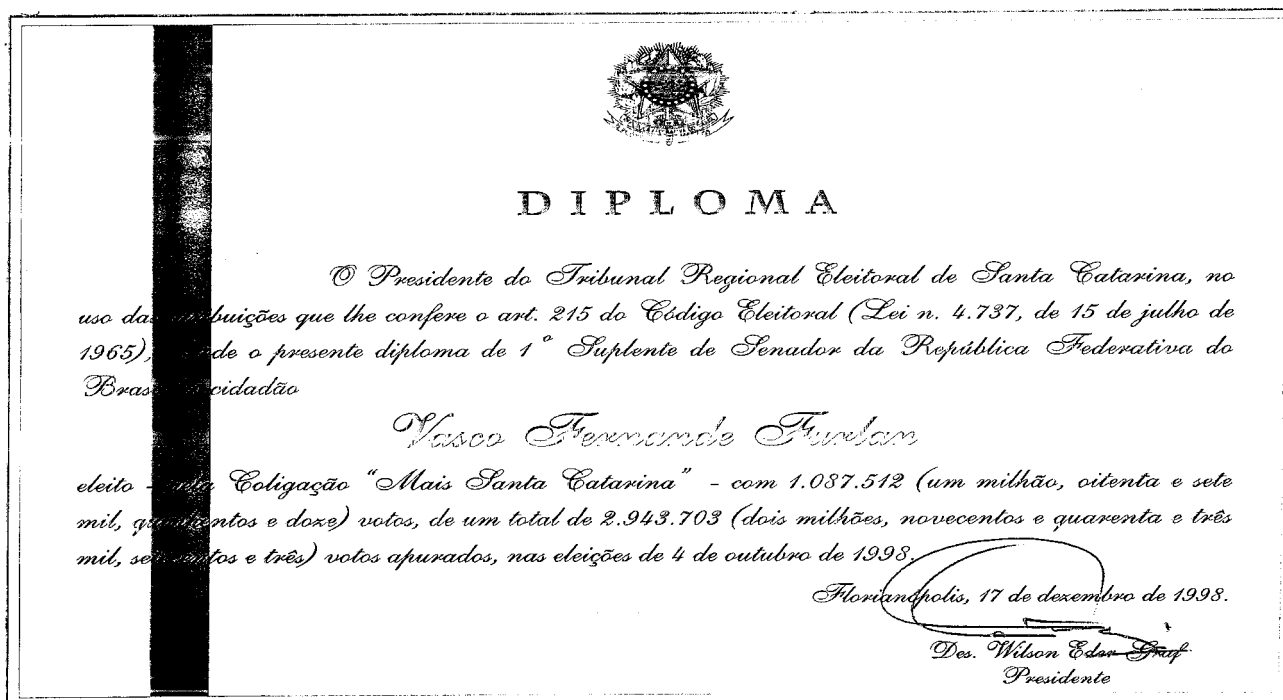 DIPLOMA
O Presidente do Tribunal Regional Eleitoral de Santa Catarina, no
uso das buições que lhe confere o art. 215 do Código Eleitoral (Lei n. 4.737, de 15 de julho de
1965), de o presente diploma de 1º Suplente de Senador da República Federativa do
Bras cidadão
Vasco Fernande Furlan
eleito - Coligação "Mais Santa Catarina" - com 1.087.512 (um milhão, oitenta e sete
mil, entos e doze) votos, de um total de 2.943.703 (dois milhões, novecentos e quarenta e três
mil, se tos e três) votos apurados, nas eleições de 4 de outubro de 1998.
Florianópolis, 17 de dezembro de 1998.
Des. Wilson Eder Graf
Presidente